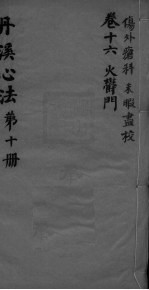 傷外瘡科未暇盡校
卷十六火欝門
丹溪心法第十册